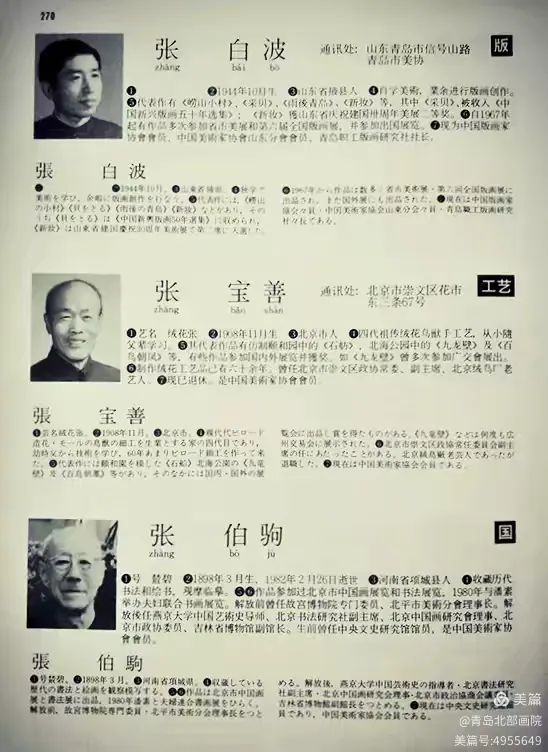 270
张 白波
zhāng bái bō
通讯处: 山东青岛市信号山路
青岛市美协
版
❶ ❷1944年10月生 ❸山东省掖县人 ❹自学美術，業余进行版画创作。
❺代表作有《崂山小村》、《采贝》、《雨後青岛》、《新妝》等，其中《采贝》被收入《中
国新兴版画五十年选集》；《新妝》獲山东省庆祝建国卅周年美展二等奖。❻自1967年
起有作品多次参加省市美展和第六届全国版画展，并参加出国展览。❼现为中国版画家
协會會员，中国美術家协會山东分會會员，青岛职工版画研究社社长。
張 白波
❶ ❷1944年10月。❸山東省掖県。❹独学で
美術を学び、余暇に版画創作を行なう。❺代表作には、《嶗山
の小村》《貝をとる》《雨後の青島》《新妝》などがあり、その
うち《貝をとる》は《中国新興版画50年選集》に収められ、
《新妝》は山東省建国慶祝30周年美術展で第二席に入選した。
❻1967年から作品は数多く省市美術展・第六回全国版画展に
出品され、また国外展にも出品された。❼現在は中国版画家
協会々員・中国美術家協会山東分会々員・青島職工版画研究
社々長である。
张 宝善
zhāng bǎo shàn
通讯处: 北京市崇文区花市
东三条67号
工艺
❶艺名 绒花张 ❷1908年11月生 ❸北京市人 ❹四代祖传绒花鸟獸手工艺，从小隨
父辈学习。❺其代表作品有仿制颐和园中的《石舫》、北海公園中的《九龙壁》及《百
鸟朝凤》等，有些作品参加国内外展览并獲奖。如《九龙壁》曾多次参加广交會展出。
❻制作绒花工艺品已有六十余年。曾任北京市崇文区政协常委、副主席、北京绒鸟厂老
艺人。❼现已退休。是中国美術家协會會员。
張 宝善
❶芸名絨花張。❷1908年11月。❸北京市。❹四代代ビロード
造花・モールの鳥獣の細工を生業とする家の四代目であり、
幼時父から技術を学び、60年あまりビロード細工を作って来
た。❺代表作には頤和園を模した《石船》北海公園の《九竜
壁》及《百鳥朝鳳》等があり、そのなかには国内・国外の展
覧会に出品し賞を得たものがある。《九竜壁》などは何度も広
州交易会に展示された。❻北京市崇文区政協常任委員会副主
席の任にあたったことがある。北京絨鳥厰老芸人であったが
退職した。❼現在は中国美術家協会会員である。
张 伯驹
zhāng bó jū
国
❶号 䕺碧 ❷1898年3月生，1982年2月26日逝世 ❸河南省项城县人 ❹收藏历代
书法和绘画，观摩临摹。❺❻作品参加过北京市中国画展览和书法展览。1980年与潘素
举办夫妇联合书画展览。解放前曾任故宫博物院专门委员、北平市美術分會理事长。解
放後任燕京大学中国艺術史导师、北京书法研究社副主席、北京中国画研究會理事、北
京市政协委员、吉林省博物館副館长。生前曾任中央文史研究馆馆员，是中国美術家协
會會员。
張 伯駒
❶号䕺碧。❷1898年3月。❸河南省項城県。❹収蔵している
歴代の書法と絵画を観察模写する。❺❻作品は北京市中国画
展と書法展に出品、1980年潘素と夫婦連合書画展をひらく。
解放前、故宮博物院専門委員・北平市美術分会理事長をつと
める。解放後、燕京大学中国芸術史の指導者・北京書法研究
社副主席・北京中国画研究会理事・北京市政治協商会議
員・吉林省博物館副館長をつとめる。❼現在は中央文史研究
員であり、中国美術家協会会員である。
美篇
@青岛北部画院
美篇号:4955649